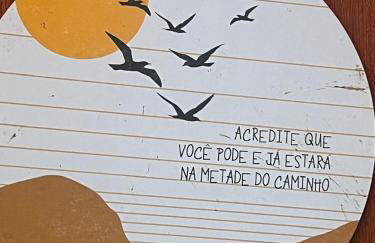 ACREDITE QUE
VOCÊ PODE E JÁ ESTARÁ
NA METADE DO CAMINHO